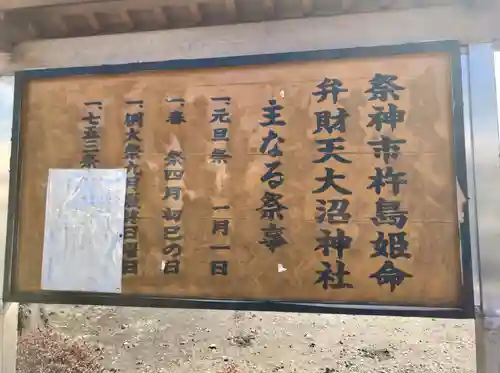 祭神市杵島姫命
弁財天大沼神社
主なる祭事
一、元旦祭 一月一日
一、春 祭四月初巳の日
一、例大祭九月最終日曜日
一、七五三祭